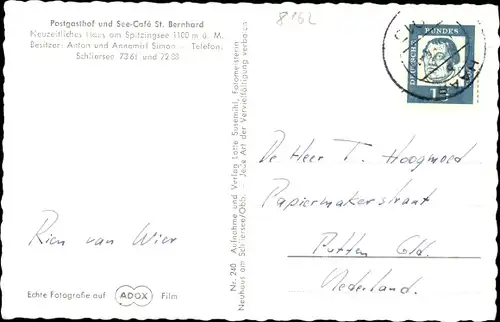 Postgasthof und See-Café St. Bernhard
Neuzeitliches Haus am Spitzingsee 1100 m ü. M.
Besitzer: Anton und Annemirl Simon - Telefon:
Schliersee 7361 und 7288
8162
DEUTSCHE BUNDES
15
De Heer T. Hoogmoed
Papiermakerstraat
Putten Gld.
Nederland.
Rien van Wier
Nr. 240 Aufnahme und Verlag Lotte Susemihl, Fotomeisterin
Neuhaus am Schliersee/Obb. - Jede Art der Vervielfältigung verboten
Echte Fotografie auf ADOX Film